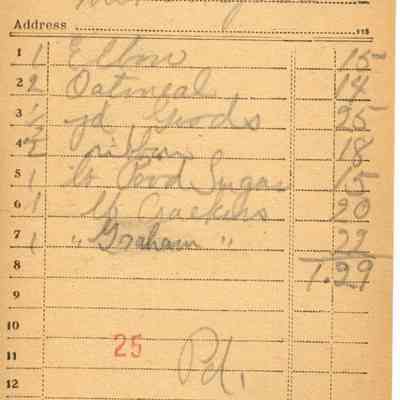 Address
1 1 Elbow 15
2 2 Oatmeal 14
3 1/2 yd Goods 25
4 2 ribbon 18
5 1 lb Powd Sugar 15
6 1 lb Crackers 20
7 1 " Graham " 22
8 1.29
9
10
11 25 Pd.
12